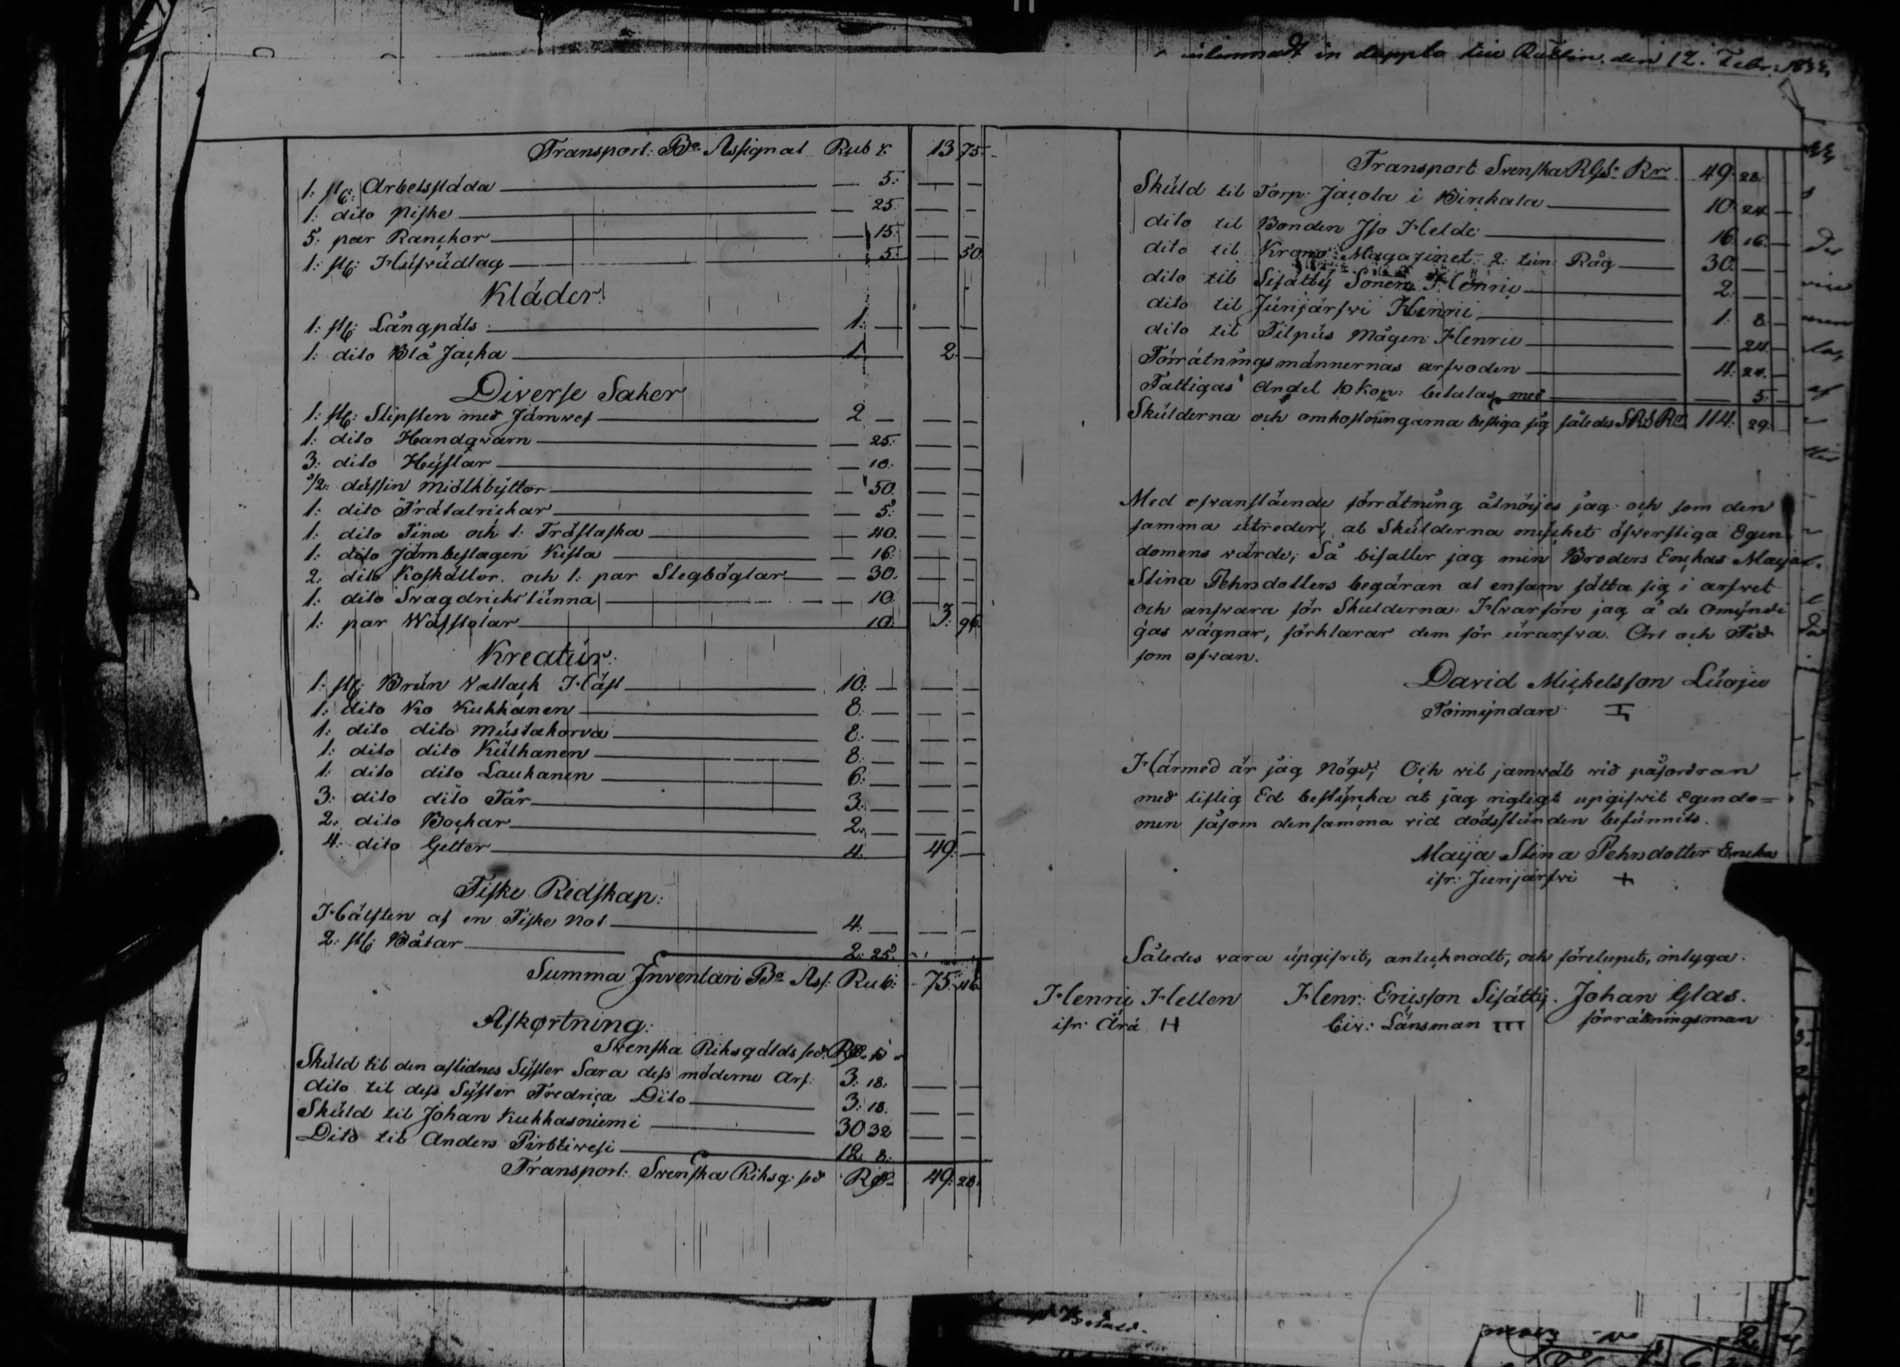 Transport: B:o Assignat Rub k 13 75
1: st: Arbetssláda 5:
1: dito Piske 25
5: par Ranckor 15:
1: st: Húsvúdlag 5: 50
Kláder:
1: st: Långpáls 1:
1: dito Blå Jacka 1 2
Diverse Saker
1: st: Slipsten med Jámvef 2
1: dito Handqvarn 25
3: dito Hýflar 10
1/2 dússin Miölkbýttor 50
1: dito Trátalrickar 5:
1: dito Tina och 1: Tráflaska 40
1: dito Jámbeslagen Kista 16
2. dito Koskállor och 1: par Stegböglar 30
1: dito Svagdricks túnna 10
1: par Wáfstolar 10 3: 96
Kreatúr:
1: st: Brún Vallack Hást 10:
1: dito Ko Kukkanen 8
1: dito dito Mústakorva 8
1: dito dito Kúlkanen 8
1: dito dito Laukanen 6
3: dito dito Får 3:
2: dito Bockar 2:
4: dito Getter 4 49
Fiske Redskap:
Hálften af en Fiske Not 4
2: st: Båtar 2: 25
Summa Inventari B:o Ass: Rub: 75: 46
Afkortning:
Svenska Riksgálds sed: Rdr
Skúld til den aflidnes Sýster Sara dess móderne Arf: 3: 18.
dito til dess Sýster Fredrica Dito 3: 18.
Skúld til Johan Kukkasniemi 30 32
Dito til Anders Pirttivesi 12 8
Transport: Svenska Riksg: sed Rdr 49: 28
in dupplo den 12. Febr:
Transport Svenska RGS: Rdr 49: 28
Skúld til Torp: Jacola i Birckala 10 24
dito til Bonden Iso Heldi 16 16
dito til Krono Magazinet 2 tún: Råg 30
dito til Sifátti Sonen Henric 2
dito til Júnijárfvi Henric 1: 8
dito til Filpús Mågen Henric 24
Förrátnings mánnernas arfvoden 4: 24
Fattigas Andel 10 kop: betalas med 5
Skúlderna och omkostningarna bestiga sig således SRGS Rdr 114: 29
Med ofvanståendee förrátning åtnöijes jag och som den
samma útreder, at Skúlderna múcket öfverstiga Egen
domens várde; Så bifaller jag min Broders Enckas Maija
Stina Pehrsdotters begáran at ensam sátta sig i arfvet
och ansvara för Skúlderna Hvarföre jag å de Omýndi
gas vágnar, förklarar dem för úrarfva. Ort och Tid
som ofvan.
David Mickelsson Lúoja
Förmýndare
Hármed ár jag Nögd; Och vil jamvál vid påfordran
med liflig Ed bestýrcka at jag rigtigt upgifvit Egendo=
men såsom densamma vid dödsstúnden befúnnits.
Maija Stina Pehrsdotter Encka
ifr: Junijárfvi +
Således vara úpgifvit, antecknadt, och förelupit, intyga.
Henric Hellen Henr: Ericsson Sifátti. Johan Glas.
ifr: Árá H Civ: Länsman III förrátningsman